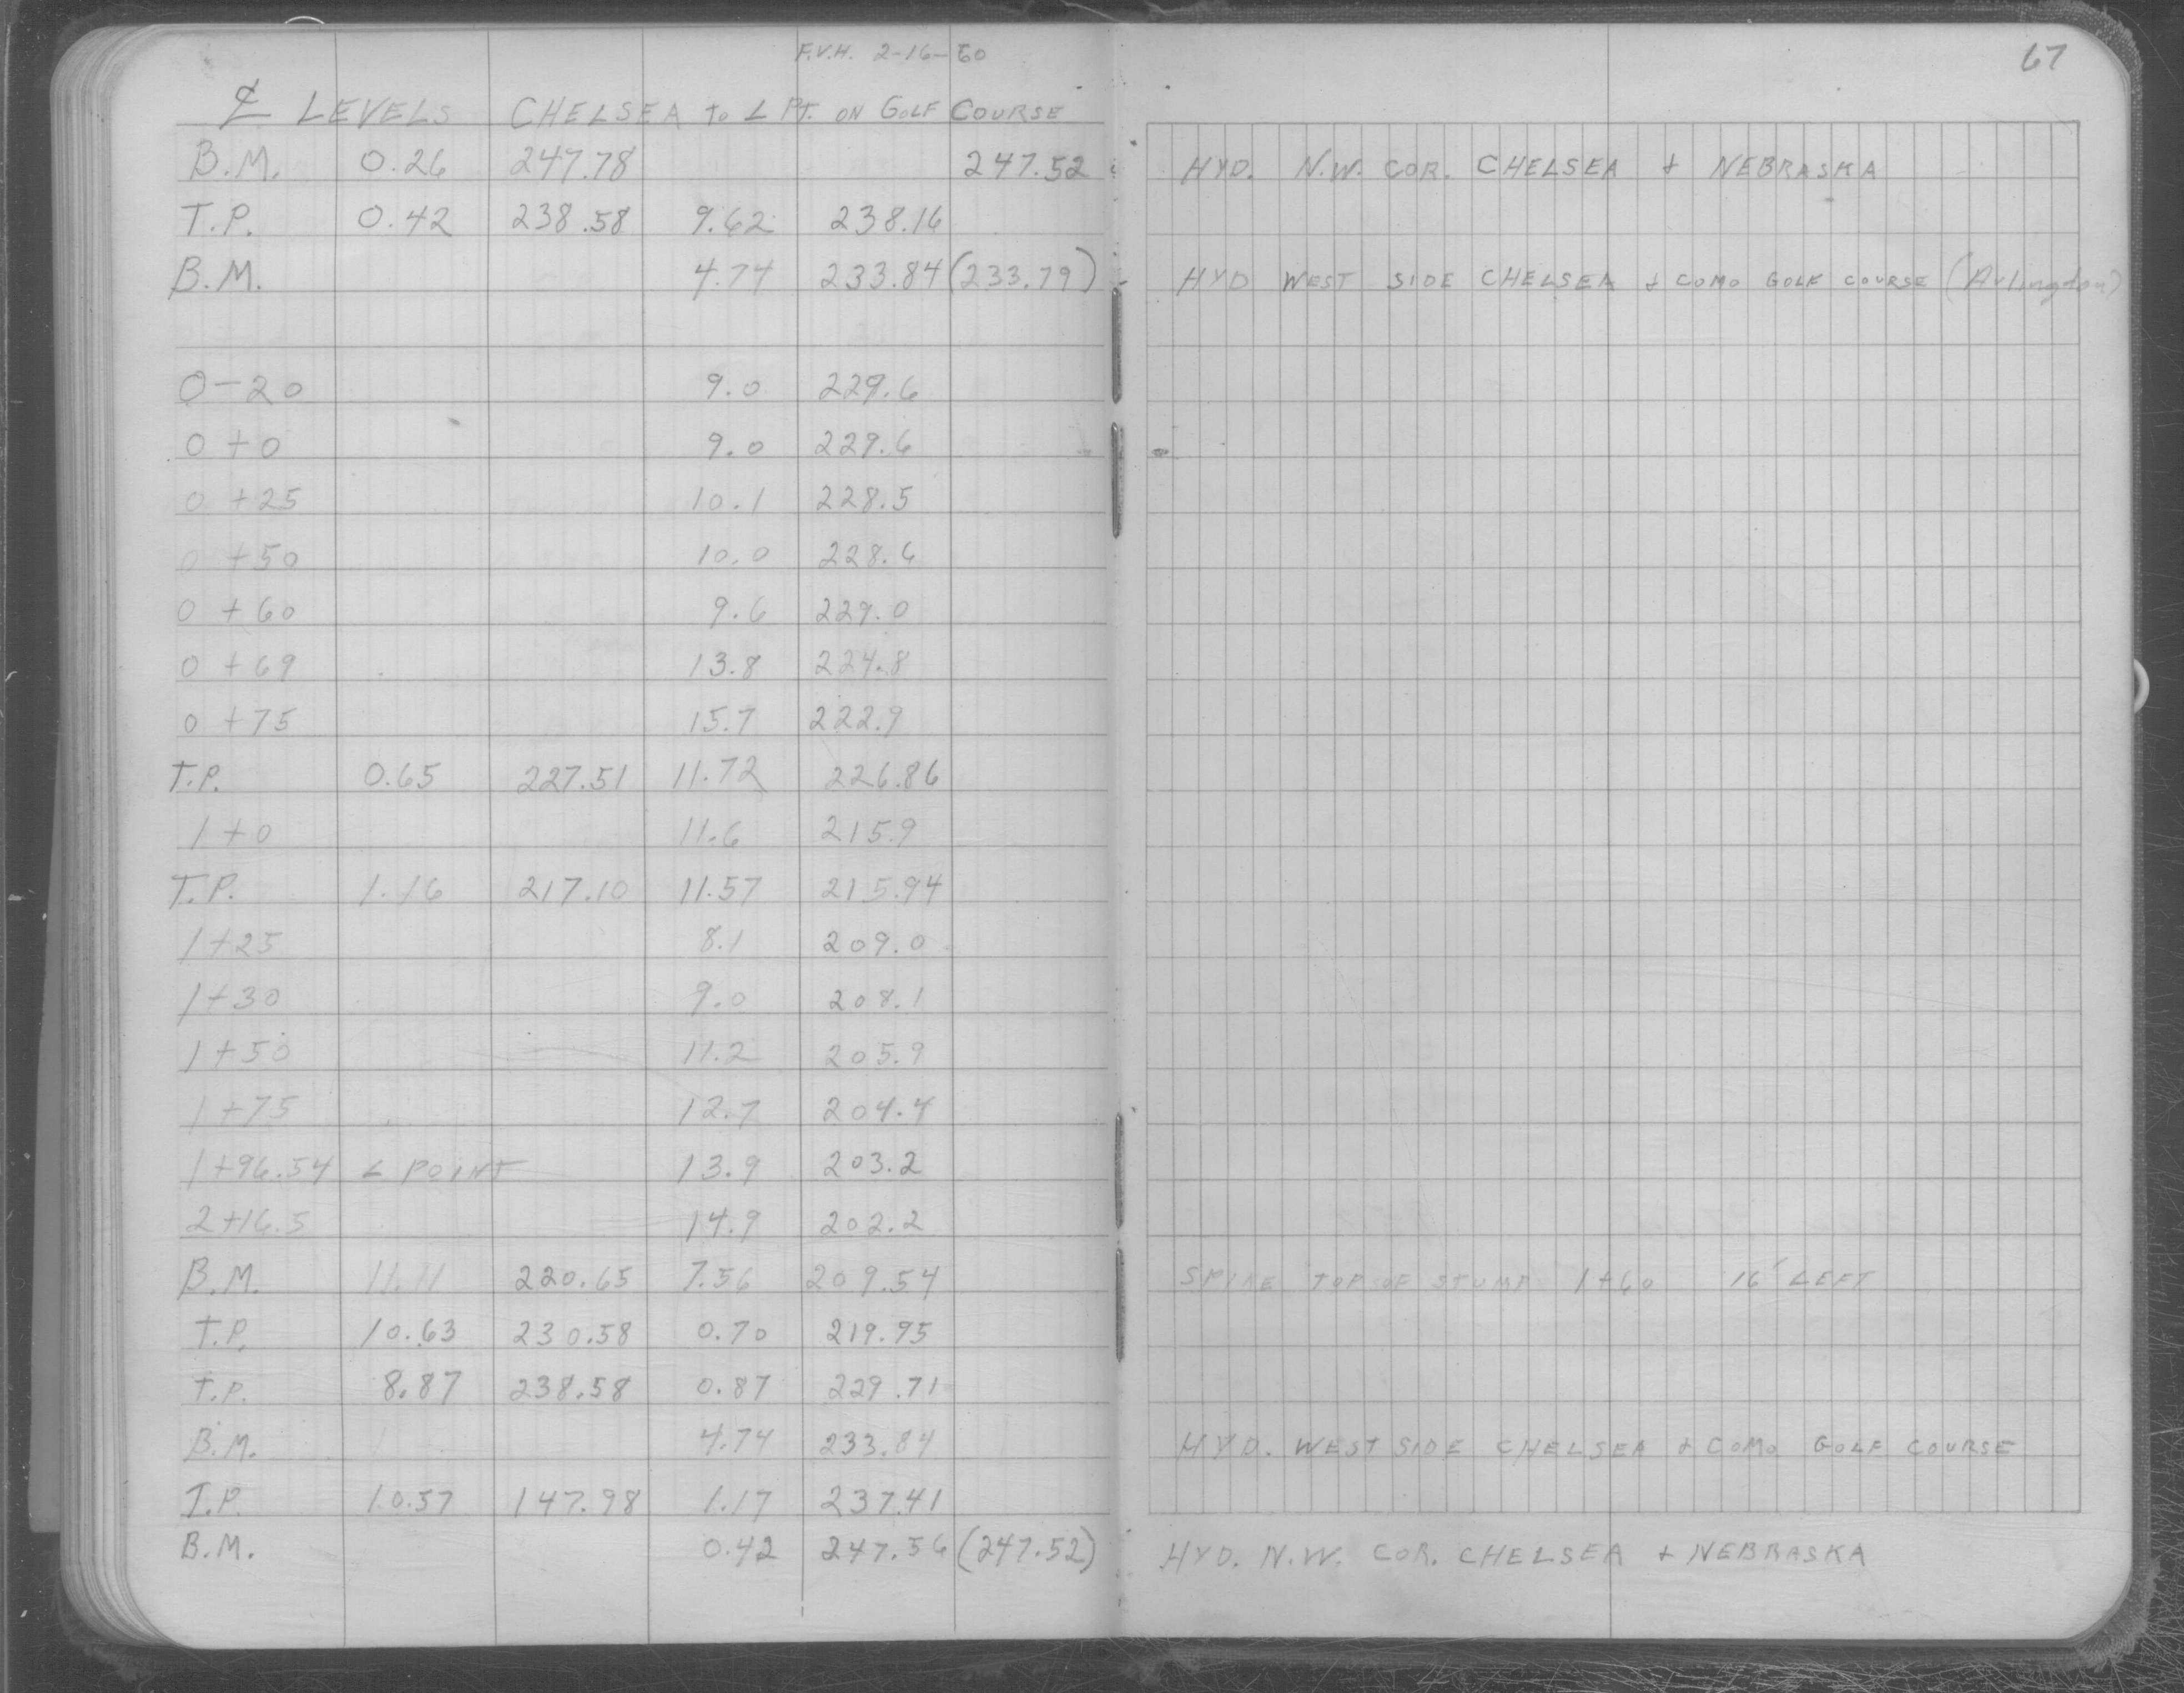 F.V.H. 2-16-60
67
℄ LEVELS CHELSEA to ∠ PT. ON GOLF COURSE
B.M. 0.26 247.78 247.52 HYD. N.W. COR. CHELSEA & NEBRASKA
T.P. 0.42 238.58 9.62 238.16
B.M. 4.74 233.84 (233.79) HYD WEST SIDE CHELSEA & COMO GOLF COURSE (Arlington)
0-20 9.0 229.6
0+0 9.0 229.6
0+25 10.1 228.5
0+50 10.0 228.6
0+60 9.6 229.0
0+69 13.8 224.8
0+75 15.7 222.9
T.P. 0.65 227.51 11.72 226.86
1+0 11.6 215.9
T.P. 1.16 217.10 11.57 215.94
1+25 8.1 209.0
1+30 9.0 208.1
1+50 11.2 205.9
1+75 12.7 204.4
1+96.54 ∠ POINT 13.9 203.2
2+16.5 14.9 202.2
B.M. 11.11 220.65 7.56 209.54 SPIKE TOP OF STUMP 1+60 16' LEFT
T.P. 10.63 230.58 0.70 219.95
T.P. 8.87 238.58 0.87 229.71
B.M. 4.74 233.84 HYD. WEST SIDE CHELSEA & COMO GOLF COURSE
T.P. 10.57 147.98 1.17 237.41
B.M. 0.42 247.56 (247.52) HYD. N.W. COR. CHELSEA & NEBRASKA